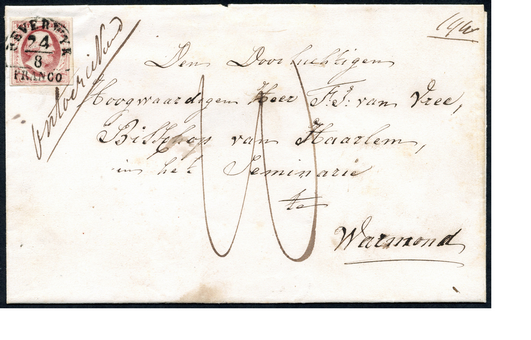 BEVERWYK
24/8
FRANCO
Den Doorluchtigen
Hoogwaardigen Heer F.J. van Vree,
Bisschop van Haarlem,
in het Seminarie
te
Warmond
10